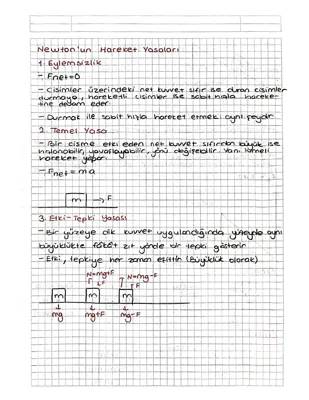 Newton'un Hareket Yasaları
1. Eylemsizlik
- Fnet=0
- Cisimler üzerindeki net kuvvet sıfır ise duran cisimler
durmaya, hareketli cisimler ise sabit hızla hareke-
tine devam eder
- Durmak ile sabit hızla hareket etmek aynı şeydir
2. Temel Yasa
- Bir cisme etki eden net kuvvet sıfırdan büyük ise
hızlanabilir, yavaşlayabilir, yönü değişebilir. Yani ivmeli
hareket yapar.
- Fnet = m.a
m → F
3. Etki-Tepki Yasası
- Bir yüzeye dik kuvvet uygulandığında yüzeyde aynı
büyüklükte fakat zıt yönde bir tepki gösterir
- Etki, tepkiye her zaman eşittir (Büyüklük olarak)
N=mg+F N=mg-F
↓F ↑F
m m m
mg mg+F mg-F